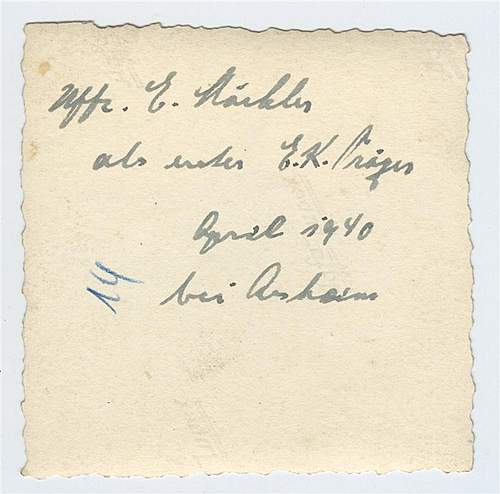 Uffz. E. Stöckler
als erster E.K. Träger
April 1940
bei Arsheim
14